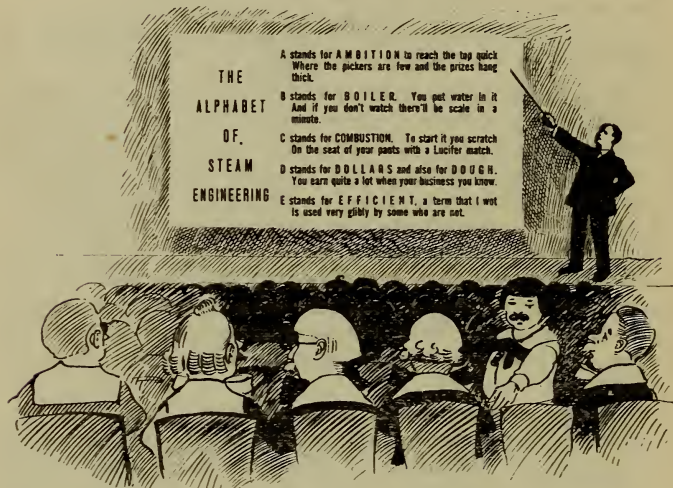 THE
ALPHABET
OF.
STEAM
ENGINEERING
A stands for AMBITION to reach the top quick
Where the pickers are few and the prizes hang
thick.
B stands for BOILER. You put water in it
And if you don't watch there'll be scale in a
minute.
C stands for COMBUSTION. To start it you scratch
On the seat of your pants with a Lucifer match.
D stands for DOLLARS and also for DOUGH.
You earn quite a lot when your business you know.
E stands for EFFICIENT, a term that I wot
Is used very glibly by some who are not.